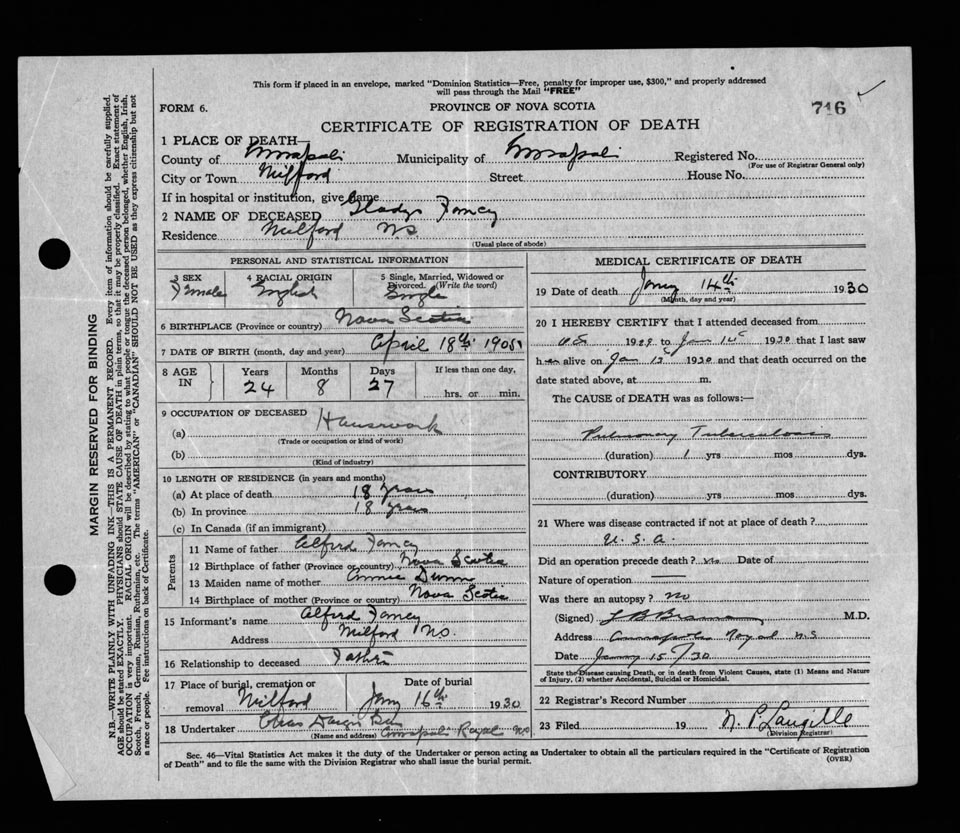 This form if placed in an envelope, marked "Dominion Statistics—Free, penalty for improper use, $300," and properly addressed
will pass through the Mail "FREE"
FORM 6.
PROVINCE OF NOVA SCOTIA
716
CERTIFICATE OF REGISTRATION OF DEATH
1 PLACE OF DEATH—
County of Annapolis Municipality of Annapolis Registered No.
(For use of Registrar General only)
City or Town Milford Street House No.
If in hospital or institution, give name
2 NAME OF DECEASED Gladys Fancy
Residence Milford NS
(Usual place of abode)
PERSONAL AND STATISTICAL INFORMATION
3 SEX Female
4 RACIAL ORIGIN English
5 Single, Married, Widowed or
Divorced. (Write the word)
Single
6 BIRTHPLACE (Province or country) Nova Scotia
7 DATE OF BIRTH (month, day and year) April 18th 1905
8 AGE IN
Years Months Days If less than one day,
24 8 27 hrs. or min.
9 OCCUPATION OF DECEASED
(a) Housework
(Trade or occupation or kind of work)
(b)
(Kind of industry)
10 LENGTH OF RESIDENCE (in years and months)
(a) At place of death 18 years
(b) In province 18 years
(c) In Canada (if an immigrant)
Parents
11 Name of father Alford Fancy
12 Birthplace of father (Province or country) Nova Scotia
13 Maiden name of mother Annie Dunn
14 Birthplace of mother (Province or country) Nova Scotia
15 Informant's name Alford Fancy
Address Milford NS.
16 Relationship to deceased Father
17 Place of burial, cremation or
removal Milford
Date of burial
Jany 16th 1930
18 Undertaker Annapolis Royal NS
(Name and address)
MEDICAL CERTIFICATE OF DEATH
19 Date of death Jany 14th 1930
(Month, day and year)
20 I HEREBY CERTIFY that I attended deceased from
1929 to Jan 1930 that I last saw
h alive on Jan 1930 and that death occurred on the
date stated above, at m.
The CAUSE of DEATH was as follows:—
Pulmonary Tuberculosis
(duration) 1 yrs mos dys.
CONTRIBUTORY
(duration) yrs mos dys.
21 Where was disease contracted if not at place of death?
U.S.A.
Did an operation precede death? no Date of
Nature of operation
Was there an autopsy? no
(Signed) M.D.
Address Annapolis Royal N.S
Date Jany 15/30
State the Disease causing Death, or in death from Violent Causes, state (1) Means and Nature
of Injury, (2) whether Accidental, Suicidal or Homicidal.
22 Registrar's Record Number
23 Filed 19 N. P. Langille
(Division Registrar)
Sec. 46—Vital Statistics Act makes it the duty of the Undertaker or person acting as Undertaker to obtain all the particulars required in the "Certificate of Registration
of Death" and to file the same with the Division Registrar who shall issue the burial permit.
(OVER)
MARGIN RESERVED FOR BINDING
N.B.—WRITE PLAINLY WITH UNFADING INK—THIS IS A PERMANENT RECORD. Every item of information should be carefully supplied.
AGE should be stated EXACTLY. PHYSICIANS should STATE CAUSE OF DEATH in plain terms, so that it may be properly classified. Exact statement of
OCCUPATION is very important. RACIAL ORIGIN will be described by stating to what people or tongue the deceased person belonged, whether English, Irish,
Scotch, French, German, Russian, Ruthenian, etc. The terms "AMERICAN" or "CANADIAN" SHOULD NOT BE USED as they express citizenship but not
a race or people. See instructions on back of Certificate.